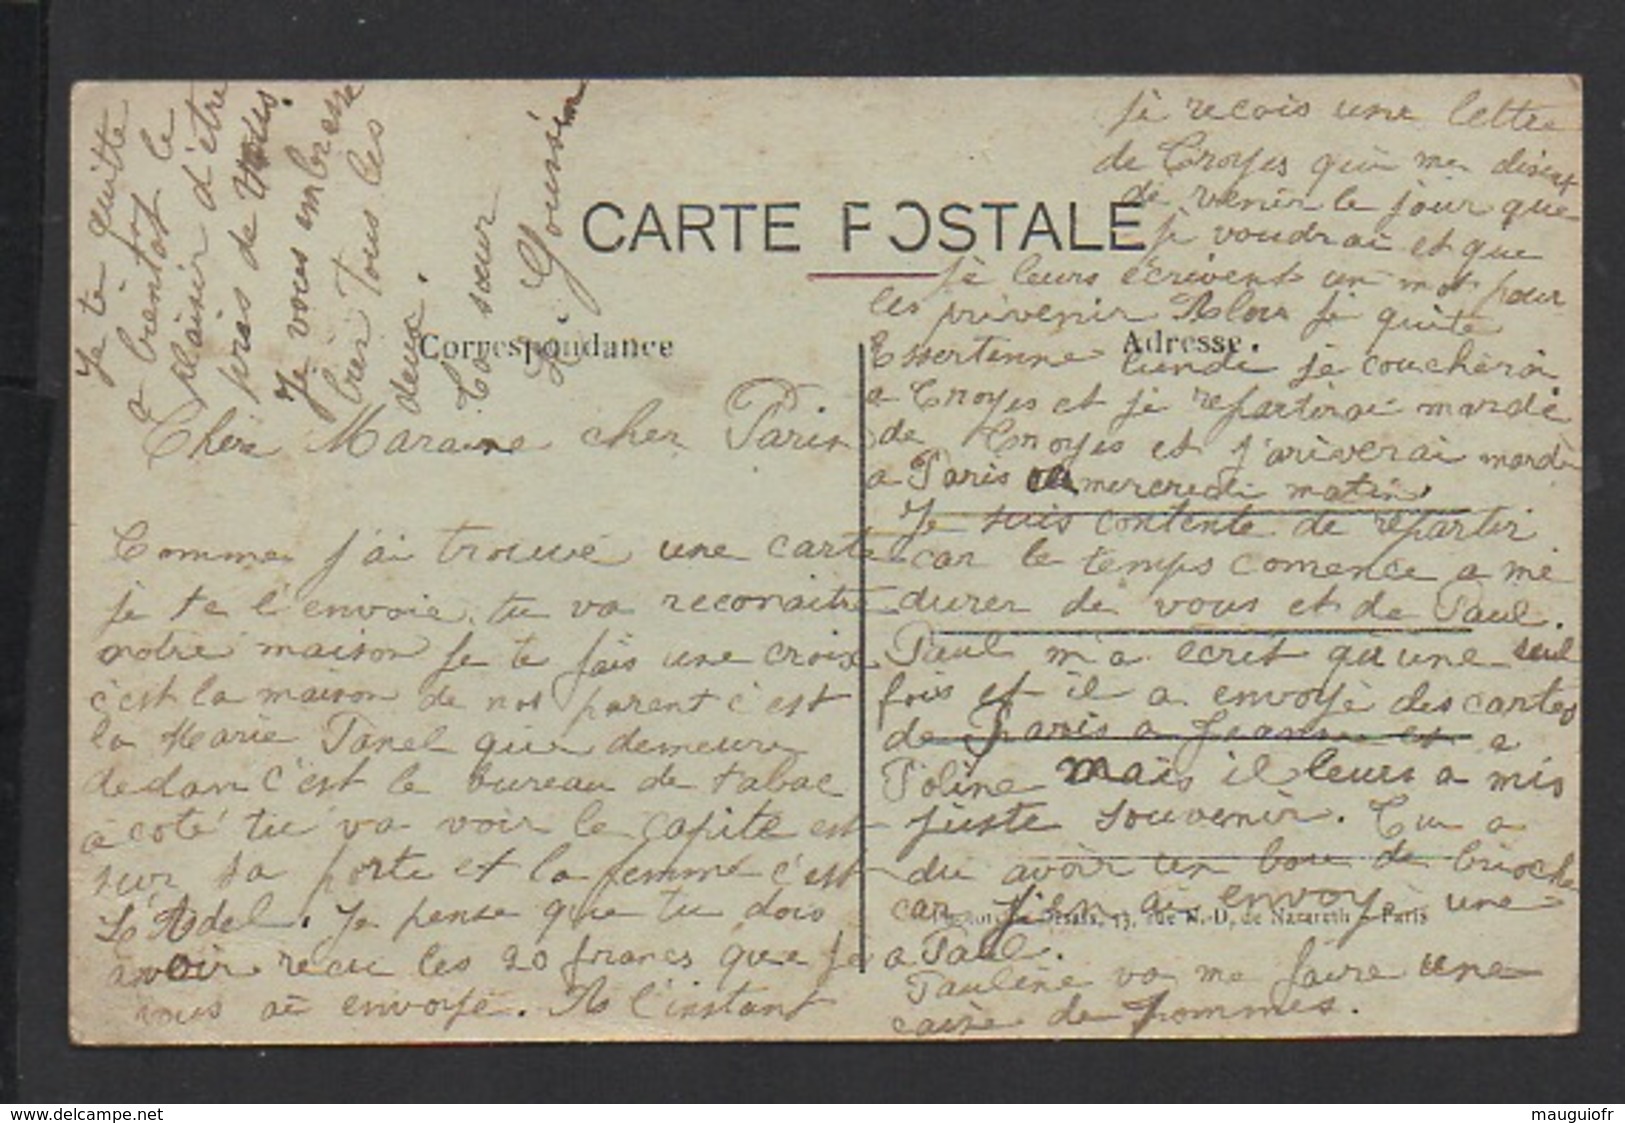 CARTE POSTALE
Correspondance
Adresse.
Chère Maraine cher Parin
Comme j'ai trouvé une carte
je te l'envoie, tu va reconaitre
notre maison Je te fais une croix
c'est la maison de nos parent c'est
la Marie Tanel que demeure
dedan c'est le bureau de tabac
à coté tu va voir le Capite est
sur sa porte et la femme c'est
L'Adel. Je pense que tu dois
avoir recu les 20 francs que je
vous ai envoyé. A l'instant
je recois une lettre
de Troyes qui me disent
de venir le jour que
je voudrai et que
je leurs écrivent un mot pour
les prévenir Alors je quite
Essertenne lundi je coucherai
a Troyes et je repartirai mardi
de Troyes et j'ariverai mardi
a Paris ou mercredi matin.
Je suis contente de repartir
car le temps comence a me
durer de vous et de Paul.
Paul m'a écrit qu'une seul
fois et il a envoyé des cartes
de Paris a Jeanne et a
Poline Mais il leurs a mis
juste souvenir. Tu a
du avoir un bou de brioche
car j'en ai envoyé une
a Paul.
Pauline va me faire une
caise de pommes.
17, rue N.-D. de Nazareth - Paris
Je te quitte
a bientot le
plaisir d'être
près de vous.
Je vous embresse
bien tous les
deux.
Ta sœur
L. Gousin
www.delcampe.net
mauguiofr